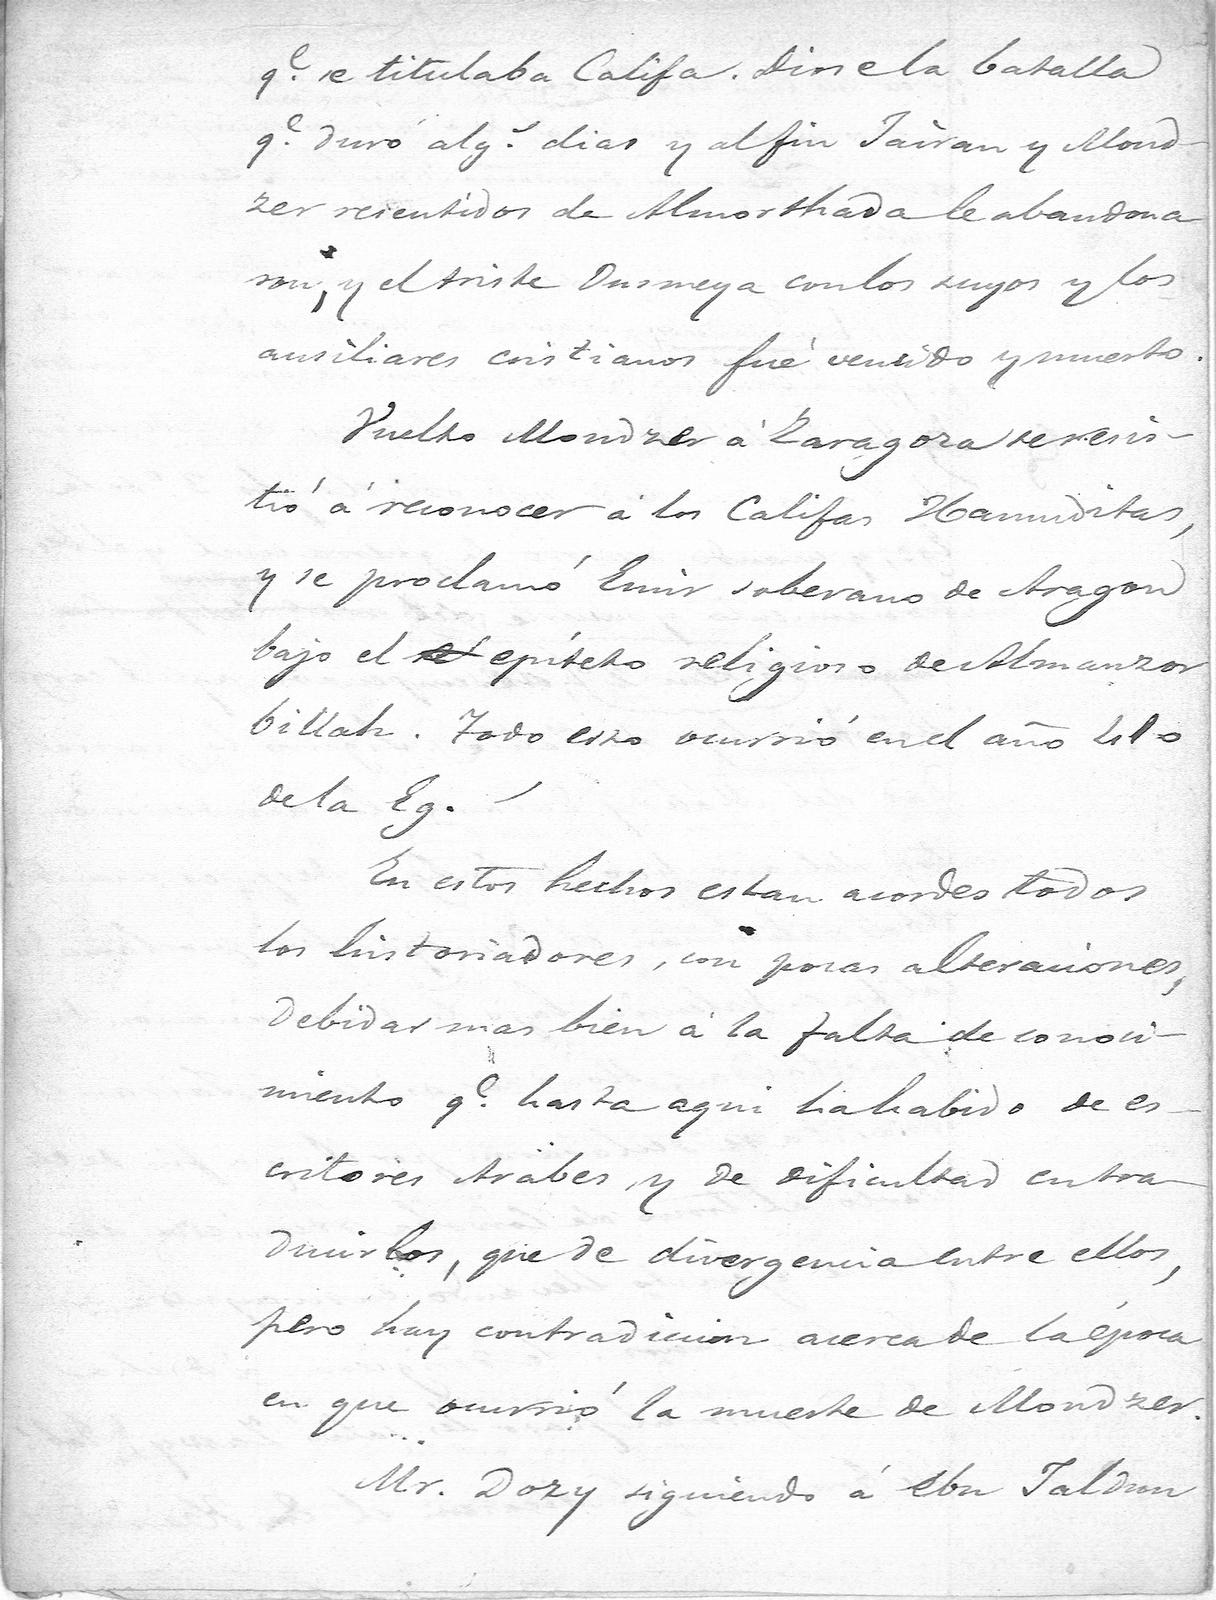 q.e se titulaba Califa. Diose la batalla
q.e duró alg.s dias y al fin Jairan y Mond-
zer resentidos de Almorthada le abandona
ron, y el triste Ousmeya con los suyos y los
ausiliares cristianos fué vencido y muerto.
Vuelto Mondzer á Zaragoza se resis-
tió á reconocer á los Califas Hamuditas,
y se proclamó Emir soberano de Aragon
bajo el epíteto religioso de Almanzor
billah. Todo esto ocurrió en el año 410
de la Eg.
En estos hechos estan acordes todos
los historiadores, con pocas alteraciones,
debidas mas bien á la falta de conoci-
miento q.e hasta aqui ha habido de es-
critores Arabes, y de dificultad en tra-
ducirlos, que de divergencia entre ellos,
pero hay contradicion acerca de la época
en que ocurrió la muerte de Mondzer.
Mr. Dozy siguiendo á ebn Jaldun